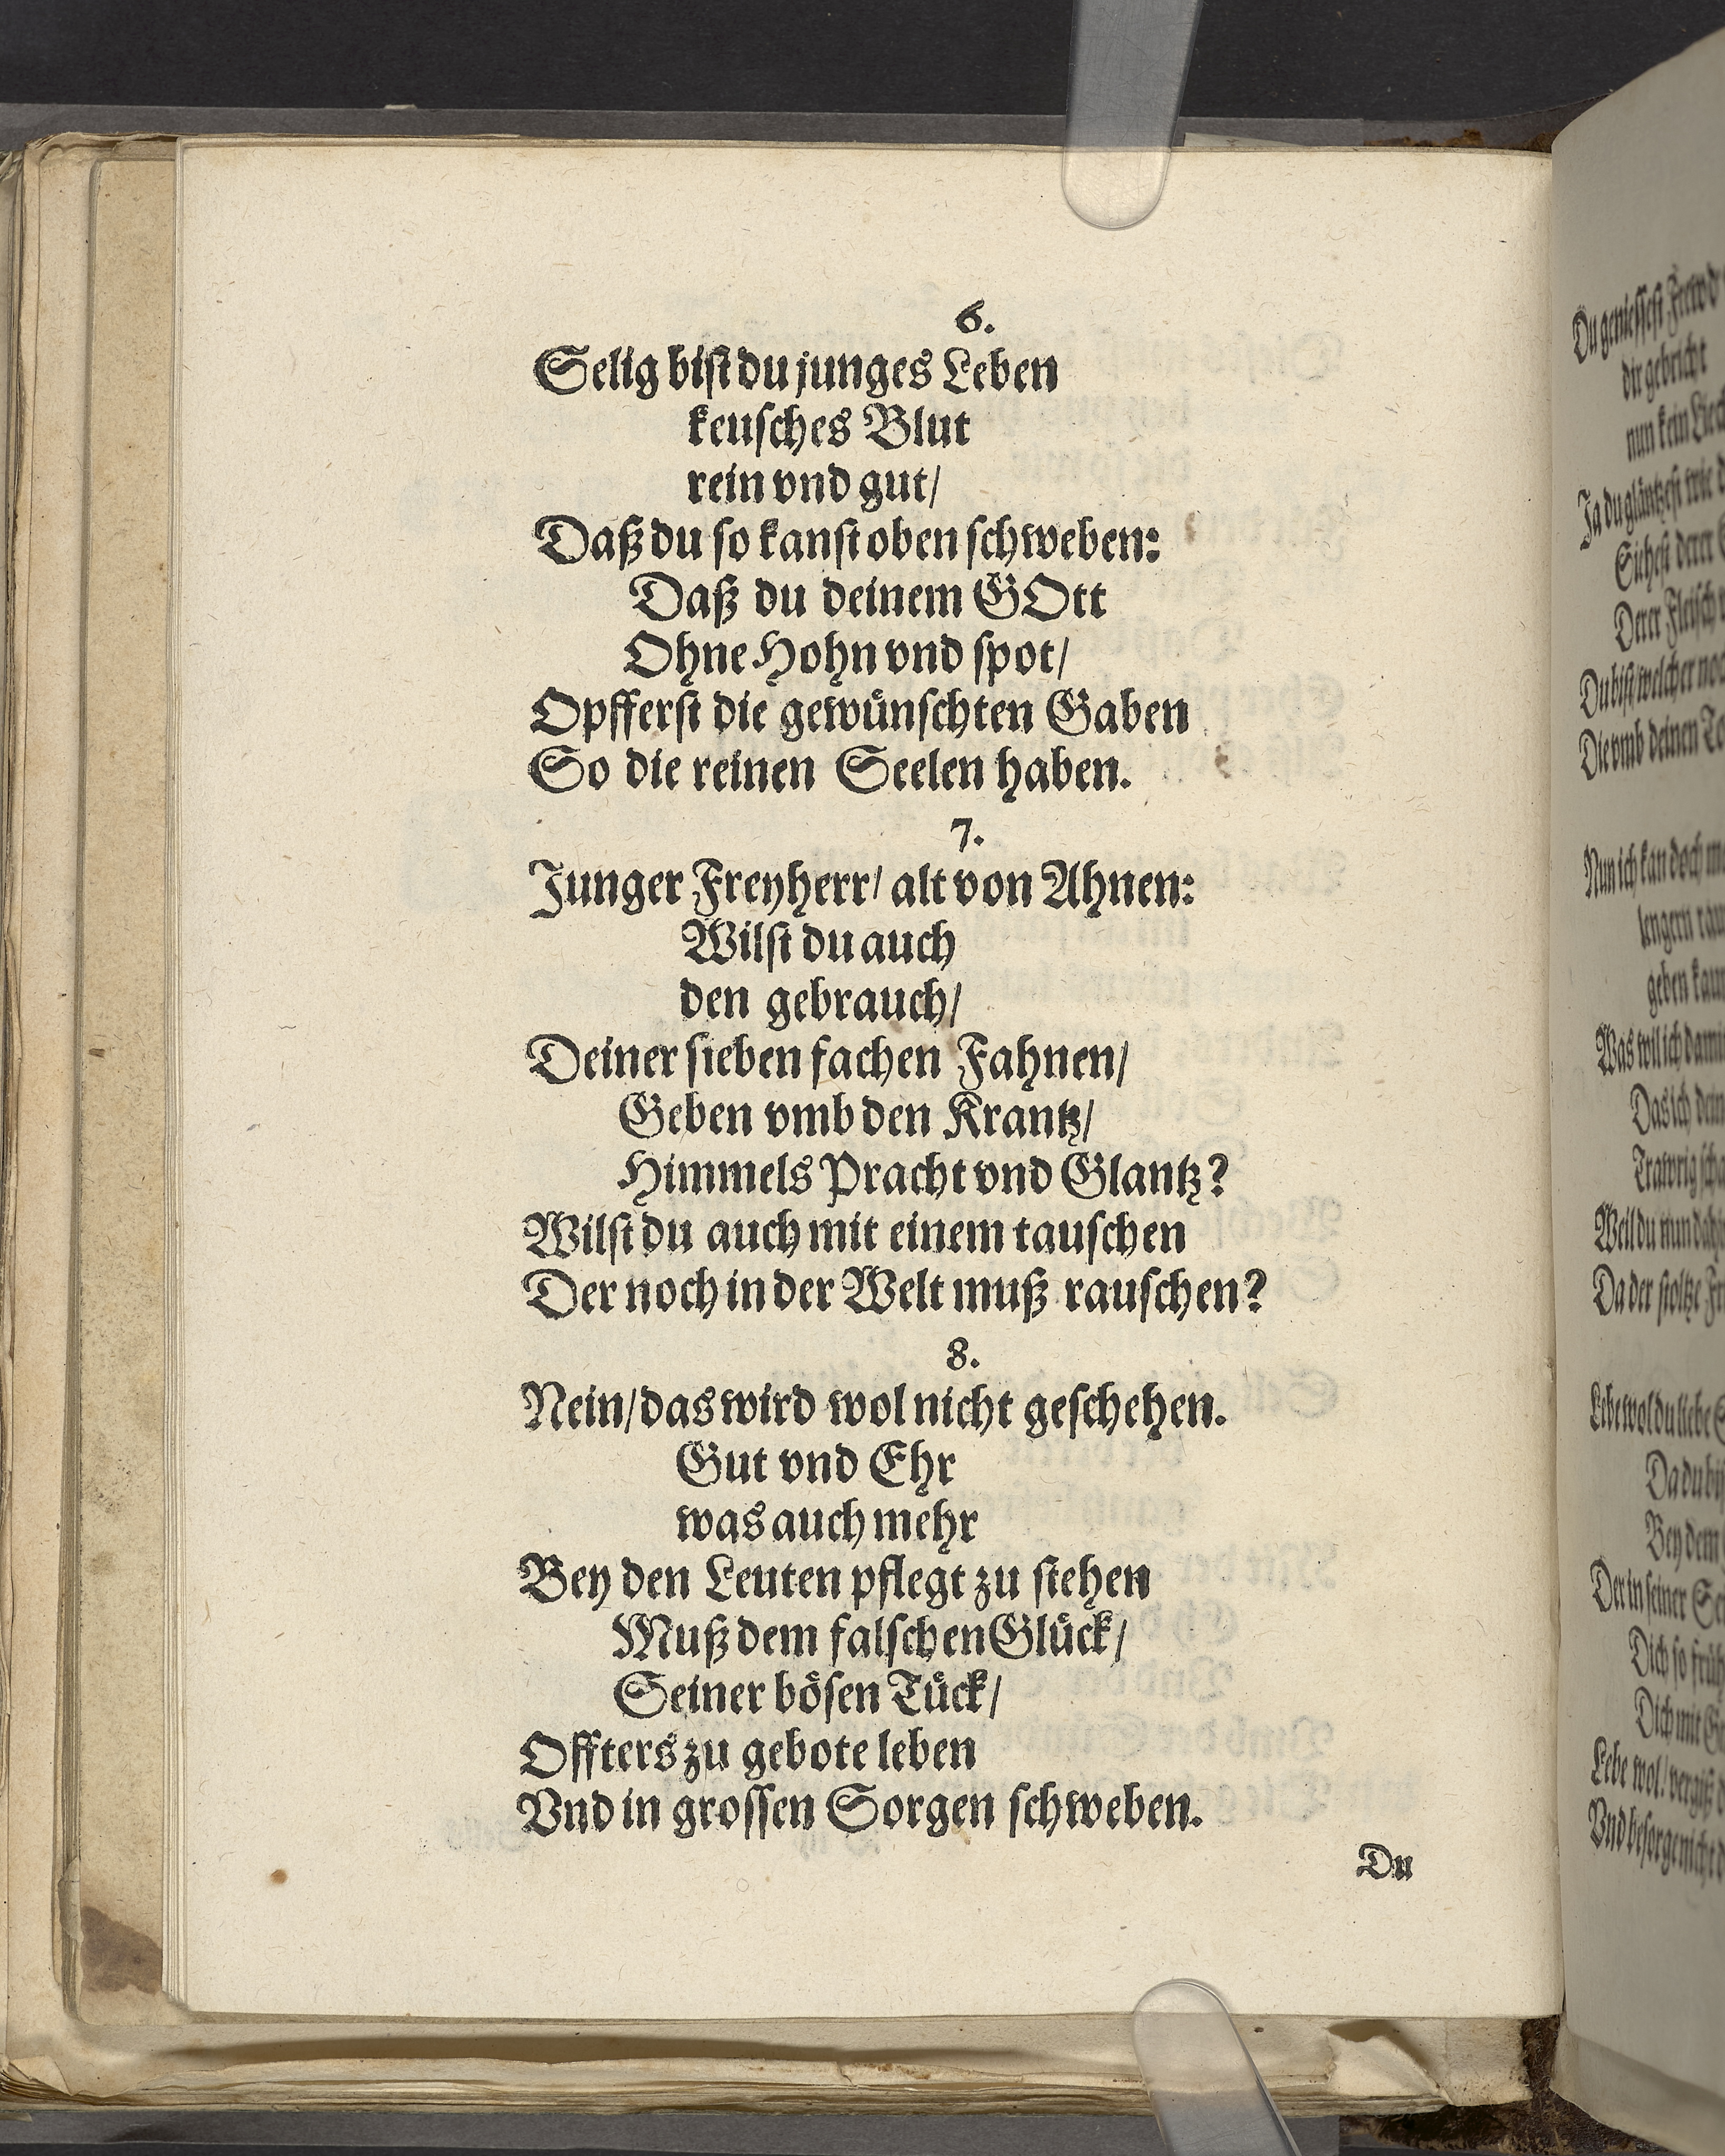 6.
Selig bist du junges Leben
keusches Blut
rein vnd gut/
Daß du so kanst oben schweben:
Daß du deinem GOtt
Ohne Hohn vnd spot/
Opfferst die gewünschten Gaben
So die reinen Seelen haben.
7.
Junger Freyherr/ alt von Ahnen:
Wilst du auch
den gebrauch/
Deiner sieben fachen Fahnen/
Geben vmb den Krantz/
Himmels Pracht vnd Glantz?
Wilst du auch mit einem tauschen
Der noch in der Welt muß rauschen?
8.
Nein/ das wird wol nicht geschehen.
Gut vnd Ehr
was auch mehr
Bey den Leuten pflegt zu stehen
Muß dem falschen Glück/
Seiner bösen Tück/
Offters zu gebote leben
Vnd in grossen Sorgen schweben.
Du
Du geniessest Frewd
dir gebricht
nun kein
Ja du gläntzest wie
Siehest derer
Derer Fleisch
Du bist welcher
Die vmb deinen
Nun ich kan doch
lengern
geben
Was wil ich
Das ich
Trawrig
Weil du nun
Da der stoltze
Lebe wol du liebe
Da du
Bey dem
Der in seiner
Dich so
Dich mit
Lebe wol/
Vnd besorge nicht